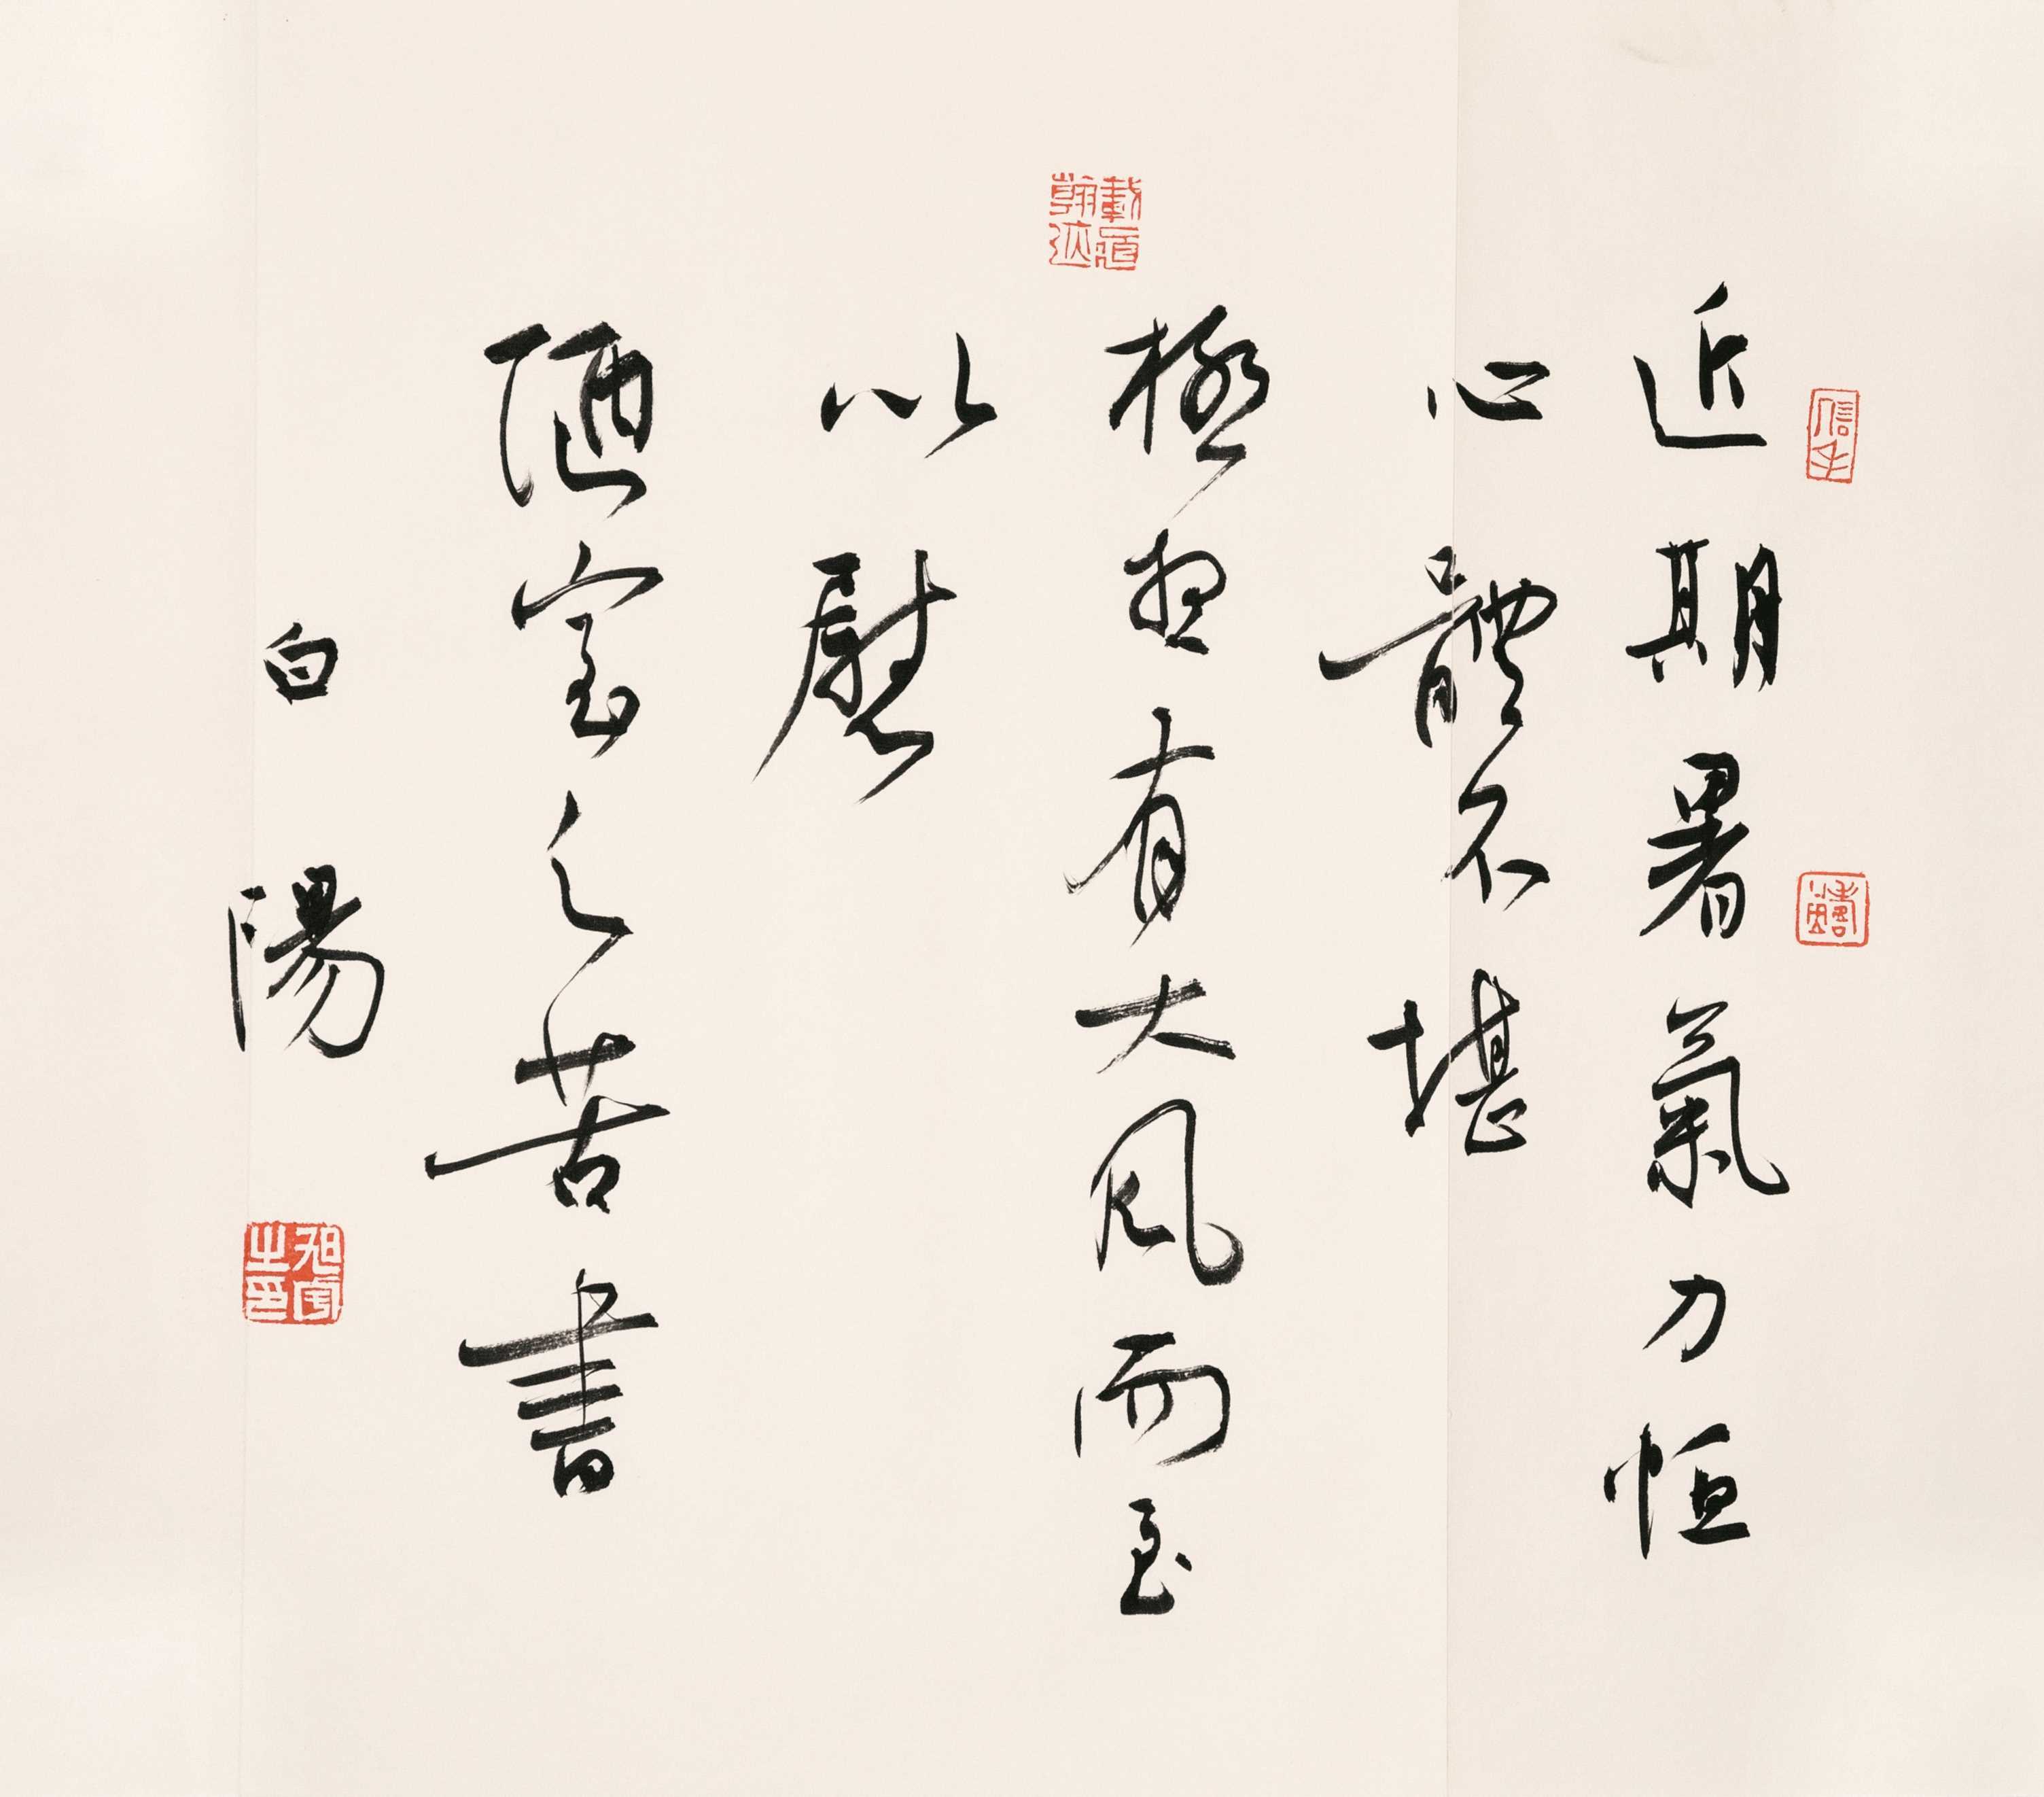 近期暑氣力恒
心體不堪
極想有大风而至
以慰
陋室之苦書
白陽